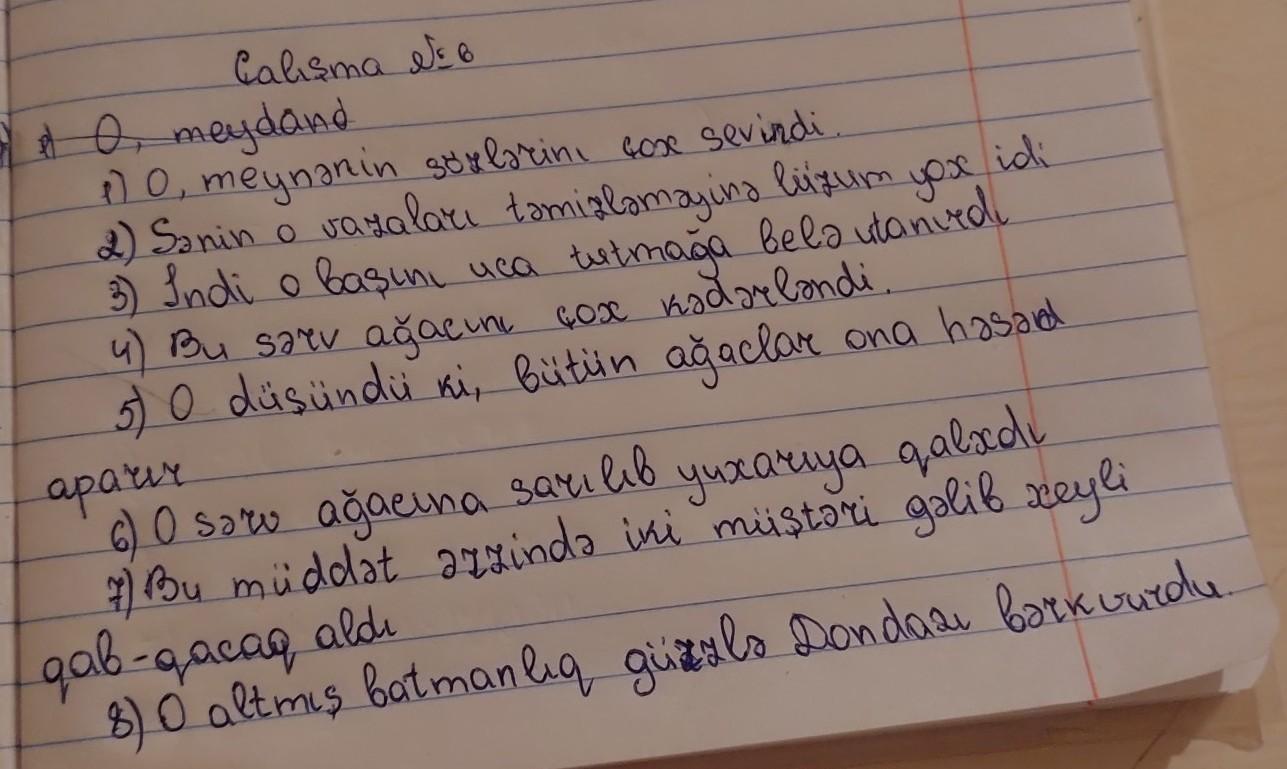 Çalışma № 6
O, meydand
1) O, meynənin sözlərinı çox sevindi.
2) Sənin o vazaları təmizləməyinə lüzum yox idi
3) İndi o başını uca tutmağa belə utanırdı
4) Bu sərv ağacını çox kədərləndi.
5) O düşündü ki, bütün ağaclar ona həsəd
aparır
6) O sərv ağacına sarılıb yuxarıya qalxdı
7) Bu müddət əzzində iki müştəri gəlib xeyli
qab-qacaq aldı
8) O altmış batmanlıq güzzlə Dondazı bərk vurdu.